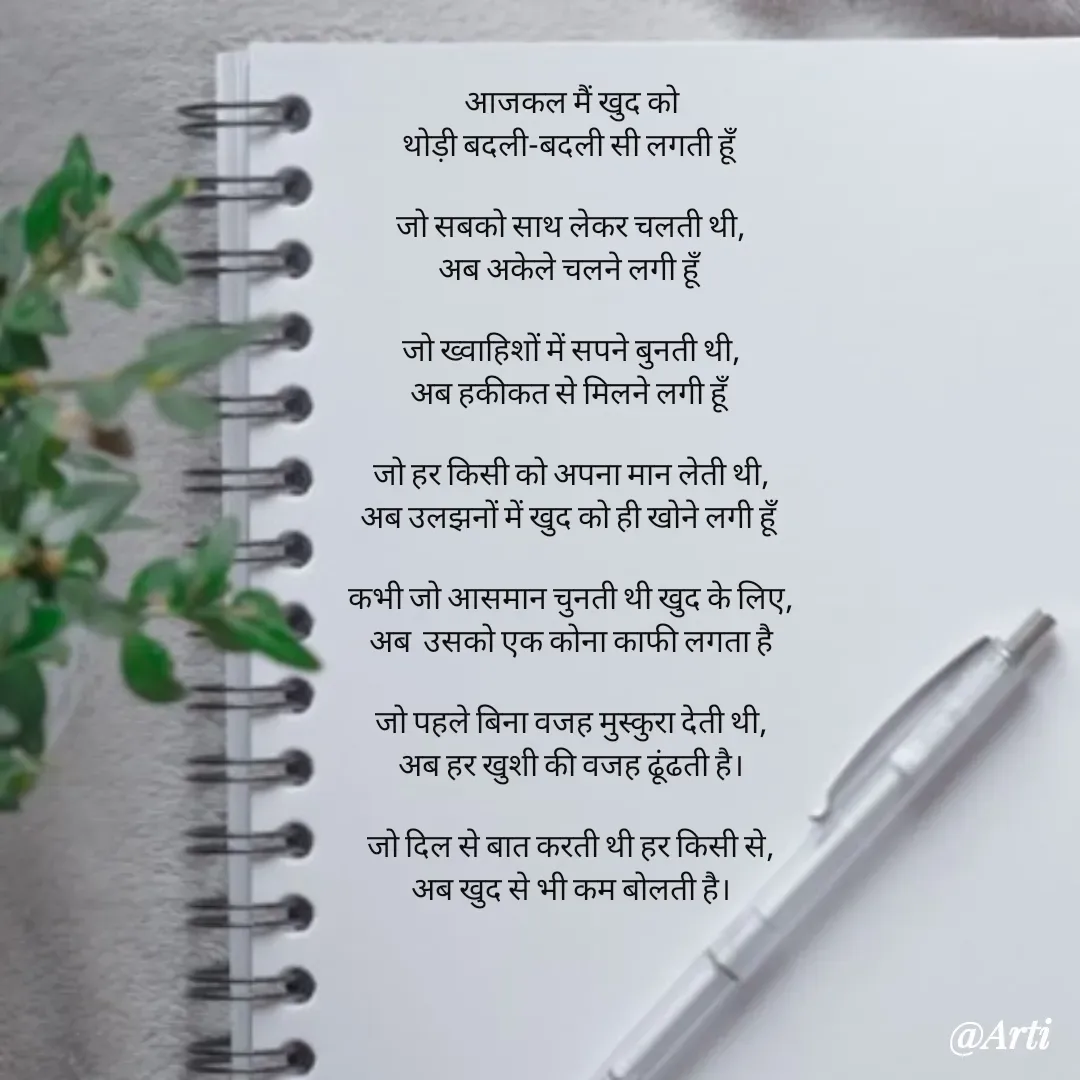 आजकल मैं खुद को
थोड़ी बदली-बदली सी लगती हूँ
जो सबको साथ लेकर चलती थी,
अब अकेले चलने लगी हूँ
जो ख्वाहिशों में सपने बुनती थी,
अब हकीकत से मिलने लगी हूँ
जो हर किसी को अपना मान लेती थी,
अब उलझनों में खुद को ही खोने लगी हूँ
कभी जो आसमान चुनती थी खुद के लिए,
अब उसको एक कोना काफी लगता है
जो पहले बिना वजह मुस्कुरा देती थी,
अब हर खुशी की वजह ढूंढती है।
जो दिल से बात करती थी हर किसी से,
अब खुद से भी कम बोलती है।
@Arti